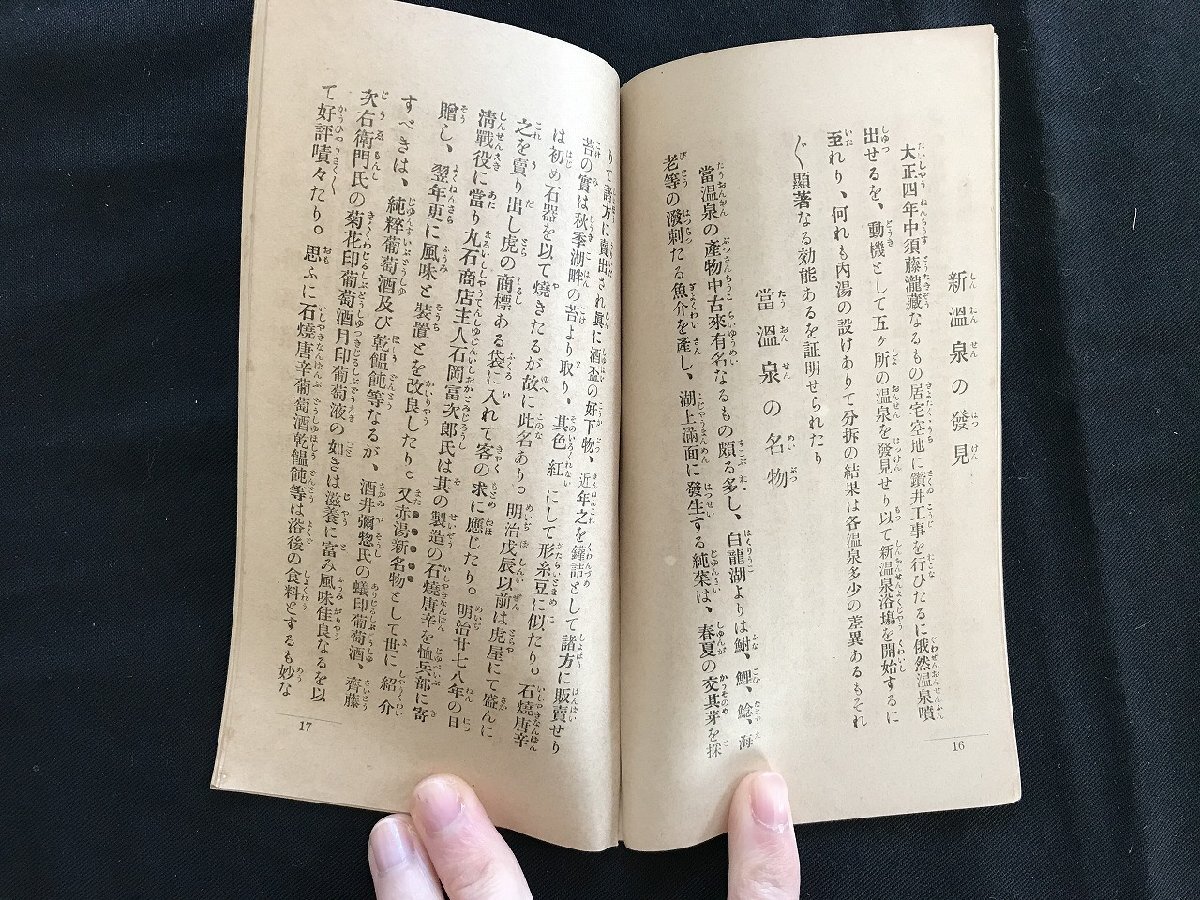 新溫泉の發見
大正四年中須藤瀧藏なるもの居宅空地に鑽井工事を行ひたるに俄然温泉噴
出せるを、動機として五ヶ所の温泉を發見せり以て新温泉浴塲を開始するに
至れり、何れも内湯の設けありて分拆の結果は各温泉多少の差異あるもそれ
〲顯著なる効能あるを証明せられたり
當溫泉の名物
當温泉の產物中古來有名なるもの頗る多し、白龍湖よりは鮒、鯉、鯰、海
老等の潑剌たる魚介を產し、湖上滿面に發生する純菜は、春夏の交其芽を採
16
りて諸方に賣出され眞に酒盃の好下物、近年之を鑵詰として諸方に販賣せり
苔の實は秋季湖畔の苔より取り、其色紅にして形糸豆に似たり。石燒唐辛
は初め石器を以て燒きたるが故に此名あり。明治戊辰以前は虎屋にて盛んに
之を賣り出し虎の商標ある袋に入れて客の求に應じたり。明治廿七八年の日
淸戰役に當り丸石商店主人石岡富次郎氏は其の製造の石燒唐辛を恤兵部に寄
贈し、翌年更に風味と裝置とを改良したり。又赤湯新名物として世に紹介
すべきは、純粹葡萄酒及び乾饂飩等なるが、酒井彌惣氏の蟻印葡萄酒、齊藤
次右衛門氏の菊花印葡萄酒月印葡萄液の如きは滋養に富み風味佳良なるを以
て好評嘖々たり。思ふに石燒唐辛葡萄酒乾饂飩等は浴後の食料とするも妙な
17